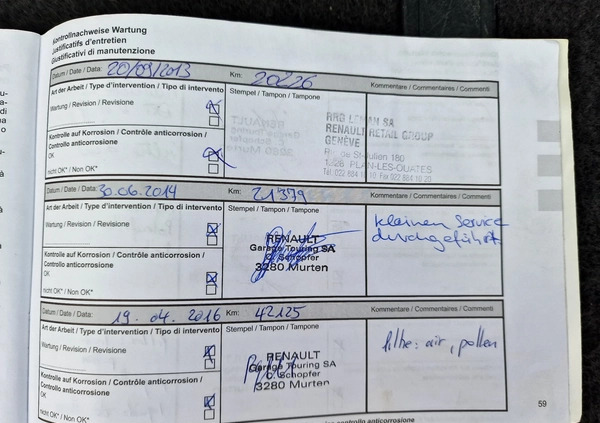 Kontrollnachweise Wartung
Justificatifs d'entretien
Giustificativi di manutenzione
Datum / Date / Data: 20/09/2013 Km: 20226 Kommentare / Commentaires / Commenti
Art der Arbeit / Type d'intervention / Tipo di intervento Stempel / Tampon / Tampone
Wartung / Revision / Revisione
RRG LEMAN SA
RENAULT RETAIL GROUP
GENÈVE
Kontrolle auf Korrosion / Contrôle anticorrosion /
Controllo anticorrosione
OK
nicht OK* / Non OK*
Rue de St-Julien 180
1228 PLAN-LES-OUATES
Datum / Date / Data: 30.06.2014 Km: 21379 Kommentare / Commentaires / Commenti
Art der Arbeit / Type d'intervention / Tipo di intervento Stempel / Tampon / Tampone
Wartung / Revision / Revisione
kleinen Service
durchgeführt
RENAULT
Garage Touring SA
C. Schopfer
3280 Murten
Kontrolle auf Korrosion / Contrôle anticorrosion /
Controllo anticorrosione
OK
nicht OK* / Non OK*
Datum / Date / Data: 19.04.2016 Km: 42125 Kommentare / Commentaires / Commenti
Art der Arbeit / Type d'intervention / Tipo di intervento Stempel / Tampon / Tampone
Wartung / Revision / Revisione
filtre: air, pollen
RENAULT
Garage Touring SA
C. Schopfer
3280 Murten
Kontrolle auf Korrosion / Contrôle anticorrosion /
Controllo anticorrosione
OK
nicht OK* / Non OK*
59